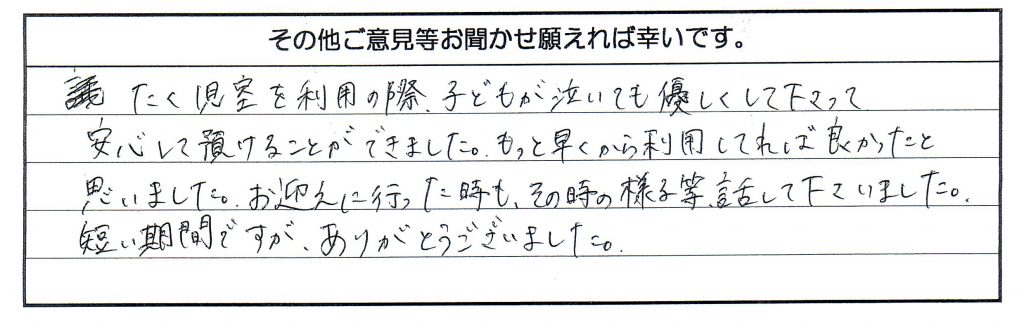 その他ご意見等お聞かせ願えれば幸いです。
たく児室を利用の際、子どもが泣いても優しくして下さって
安心して預けることができました。もっと早くから利用してれば良かったと
思いました。お迎えに行った時も、その時の様子等、話して下さいました。
短い期間ですが、ありがとうございました。